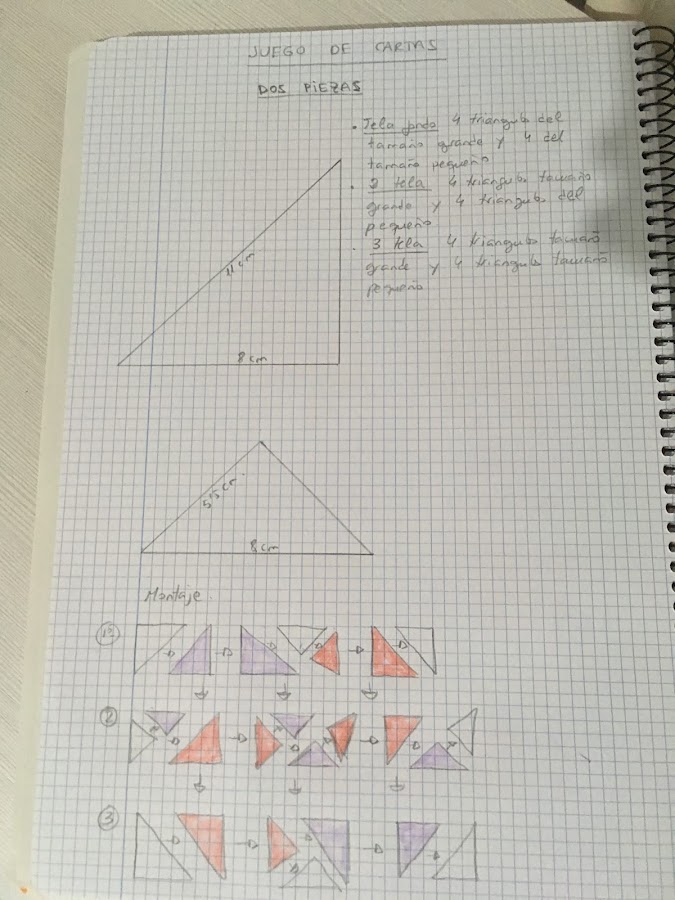 JUEGO DE CARTAS
DOS PIEZAS
• Tela fondo 4 triangulos del
tamaño grande y 4 del
tamaño pequeño
• 2 tela 4 triangulos tamaño
grande y 4 triangulos del
pequeño
• 3 tela 4 triangulos tamaño
grande y 4 triangulos tamaño
pequeño
11 cm
8 cm
5'5 cm.
8 cm
Montaje.
1º
2
3